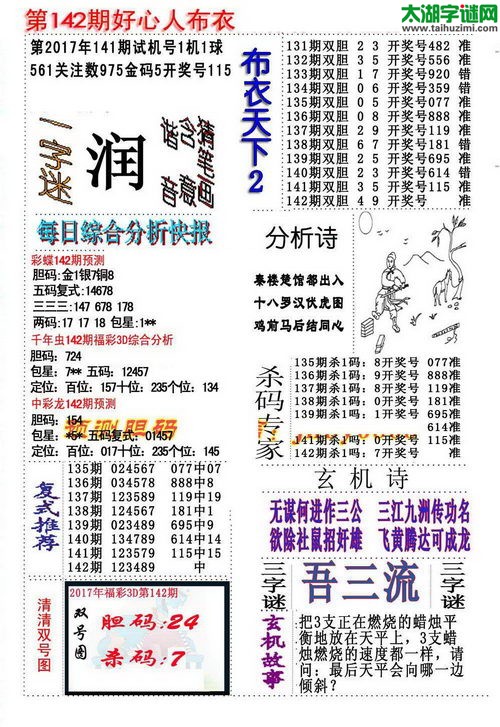 第142期好心人布衣
太湖字谜网
http://www.taihuzimi.com
第2017年141期试机号1机1球
561关注数975金码5开奖号115
一字迷
润
猜笔画
含意
猜音
每日综合分析快报
彩蝶142期预测
胆码:金1银7铜8
五码复式:14678
三三三:147 678 178
两码:17 17 18 包星:1**
千年虫142期福彩3D综合分析
胆码: 724
包星: 7** 五码: 12457
定位: 百位: 157十位: 235个位: 134
中彩龙142期预测
胆码: 154
包星: *5* 五码复式: 01457
定位: 百位: 017十位: 235个位: 145
复式推荐
135期 024567 077中07
136期 034578 888中8
137期 123589 119中19
138期 013489 181中18
139期 023489 695中9
140期 134789 614中14
141期 123579 115中15
142期 123489 中
清清双号图
2017年福彩3D第142期
双号图
胆码:24
杀码:7
布衣天下2
131期双胆 2 3 开奖号482 准
132期双胆 3 5 开奖号556 准
133期双胆 1 7 开奖号920 错
134期双胆 0 6 开奖号359 错
135期双胆 0 5 开奖号077 准
136期双胆 0 8 开奖号888 准
137期双胆 2 9 开奖号119 准
138期双胆 6 7 开奖号181 错
139期双胆 2 5 开奖号695 准
140期双胆 2 3 开奖号614 错
141期双胆 3 5 开奖号115 准
142期双胆 4 9 开奖号 准
分析诗
秦楼楚馆都出入
十八罗汉伏虎图
鸡前马后结同心
杀码专家
135期杀1码: 8开奖号 077准
136期杀1码: 9开奖号 888准
137期杀1码: 8开奖号 119准
138期杀1码: 4开奖号 181准
139期杀1吗: 1开奖号 695准
614准
141期杀1吗: 0开奖号 115准
142期杀1吗: 7开奖号 准
玄机诗
无谋何进作三公 三江九洲传功名
欲除社鼠招奸雄 飞黄腾达可成龙
三字谜
吾三流
三字谜
玄机故事
把3支正在燃烧的蜡烛平
衡地放在天平上，3支蜡
烛燃烧的速度都一样，请
问：最后天平会向哪一边
倾斜？